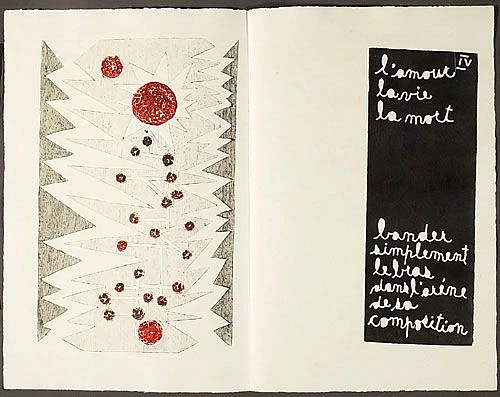 IV
l'amour
la vie
la mort
bander
simplement
le bras
dans l'arène
de sa
composition